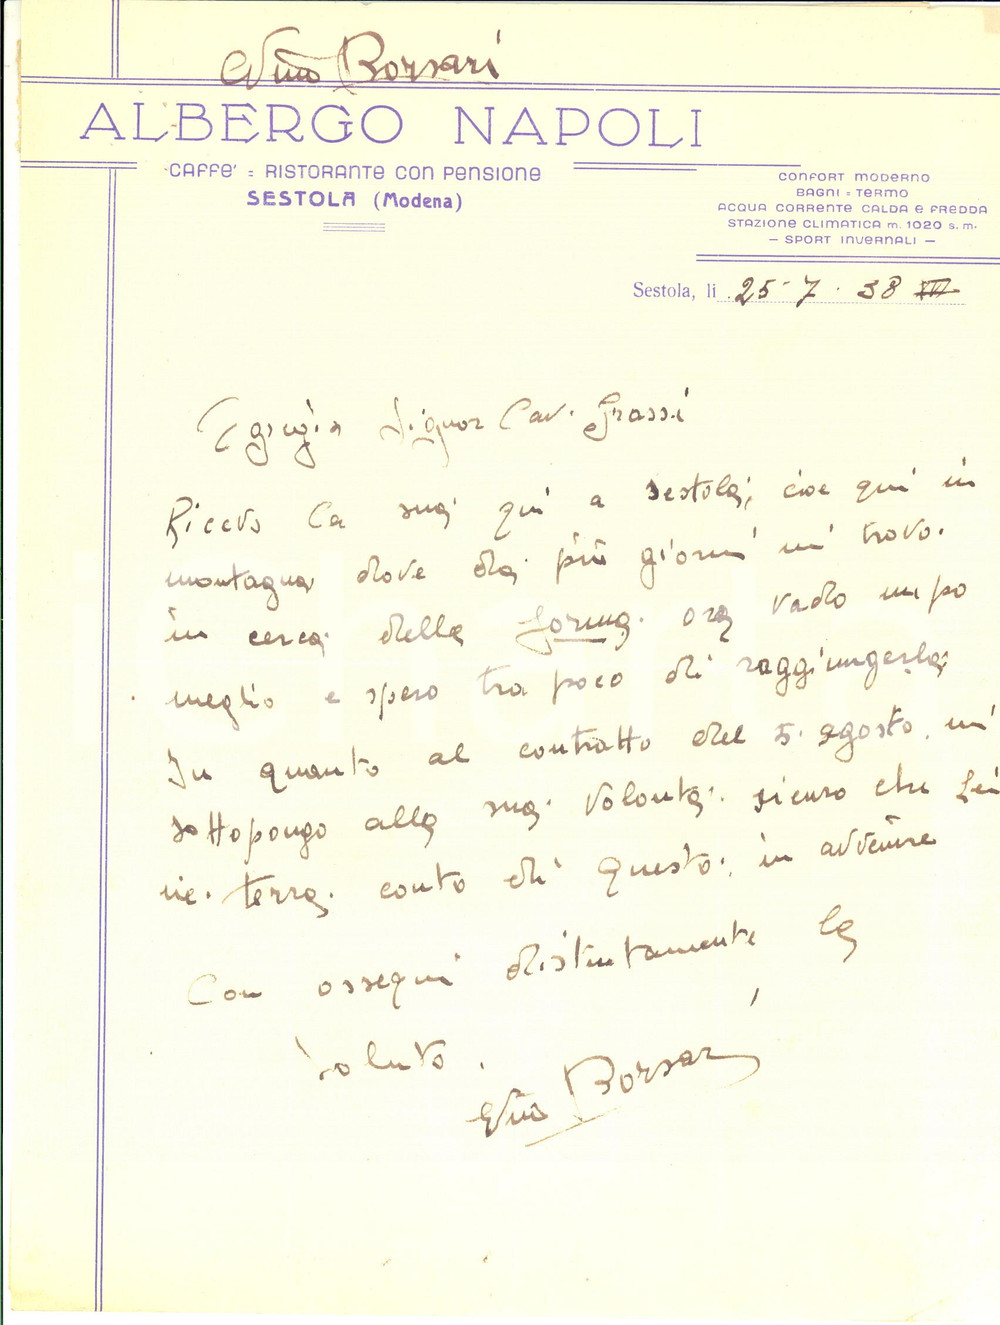 Nino Borsari
ALBERGO NAPOLI
CAFFE' = RISTORANTE CON PENSIONE
SESTOLA (Modena)
CONFORT MODERNO
BAGNI = TERMO
ACQUA CORRENTE CALDA E FREDDA
STAZIONE CLIMATICA m. 1020 s. m.
— SPORT INVERNALI —
Sestola, li 25-7-38 XVI
Egregio Signor Cav. Grassi
Ricevo la sua qui a Sestola, cioe qui in
montagna dove da più giorni mi trovo.
in cerca della forma. ora vado un po
meglio e spero tra poco di raggiungerla,
In quanto al contratto del 5. agosto. mi
sottopongo alla sua volontà. sicuro che Lei
ne. terra. conto di questo, in avvenire
Con ossequi distintamente la
saluto.
Nino Borsari